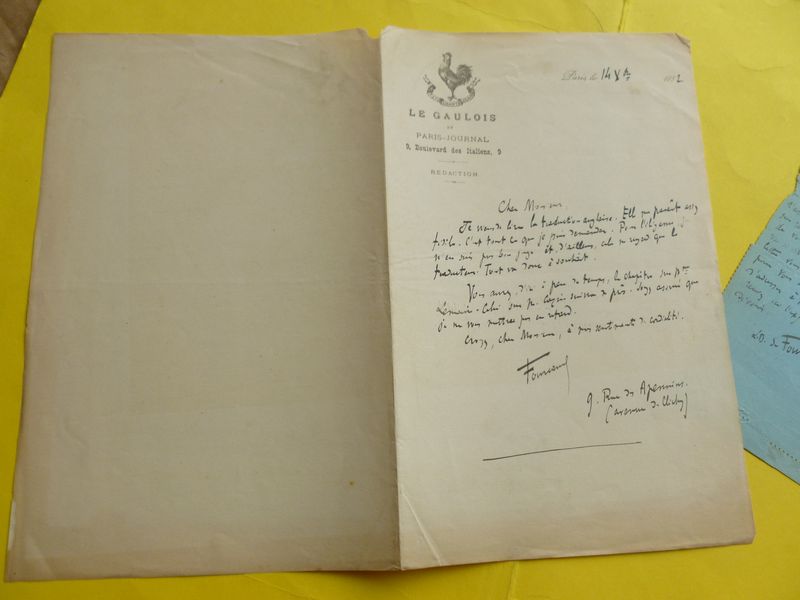 LE GAULOIS
ET
PARIS-JOURNAL
9, Boulevard des Italiens, 9
RÉDACTION
Paris le 14 Xbre 1882
Cher Monsieur
Je viens de lire la traduction anglaise. Elle me paraît assez
fidèle. C'est tout ce que je puis demander. Pour l'élégance, je
n'en suis pas bon juge et, d'ailleurs, cela ne regarde que le
traducteur. Tout va donc à souhait.
Vous aurez, d'ici à peu de temps, le chapitre sur
Lemaire. Celui sur M. suivra de près. Soyez assuré que
je ne vous mettrai pas en retard.
Croyez, cher Monsieur, à mes sentiments de cordialité.
Fourcaud
9. Rue des Apennins.
(avenue de Clichy)
L. de Four